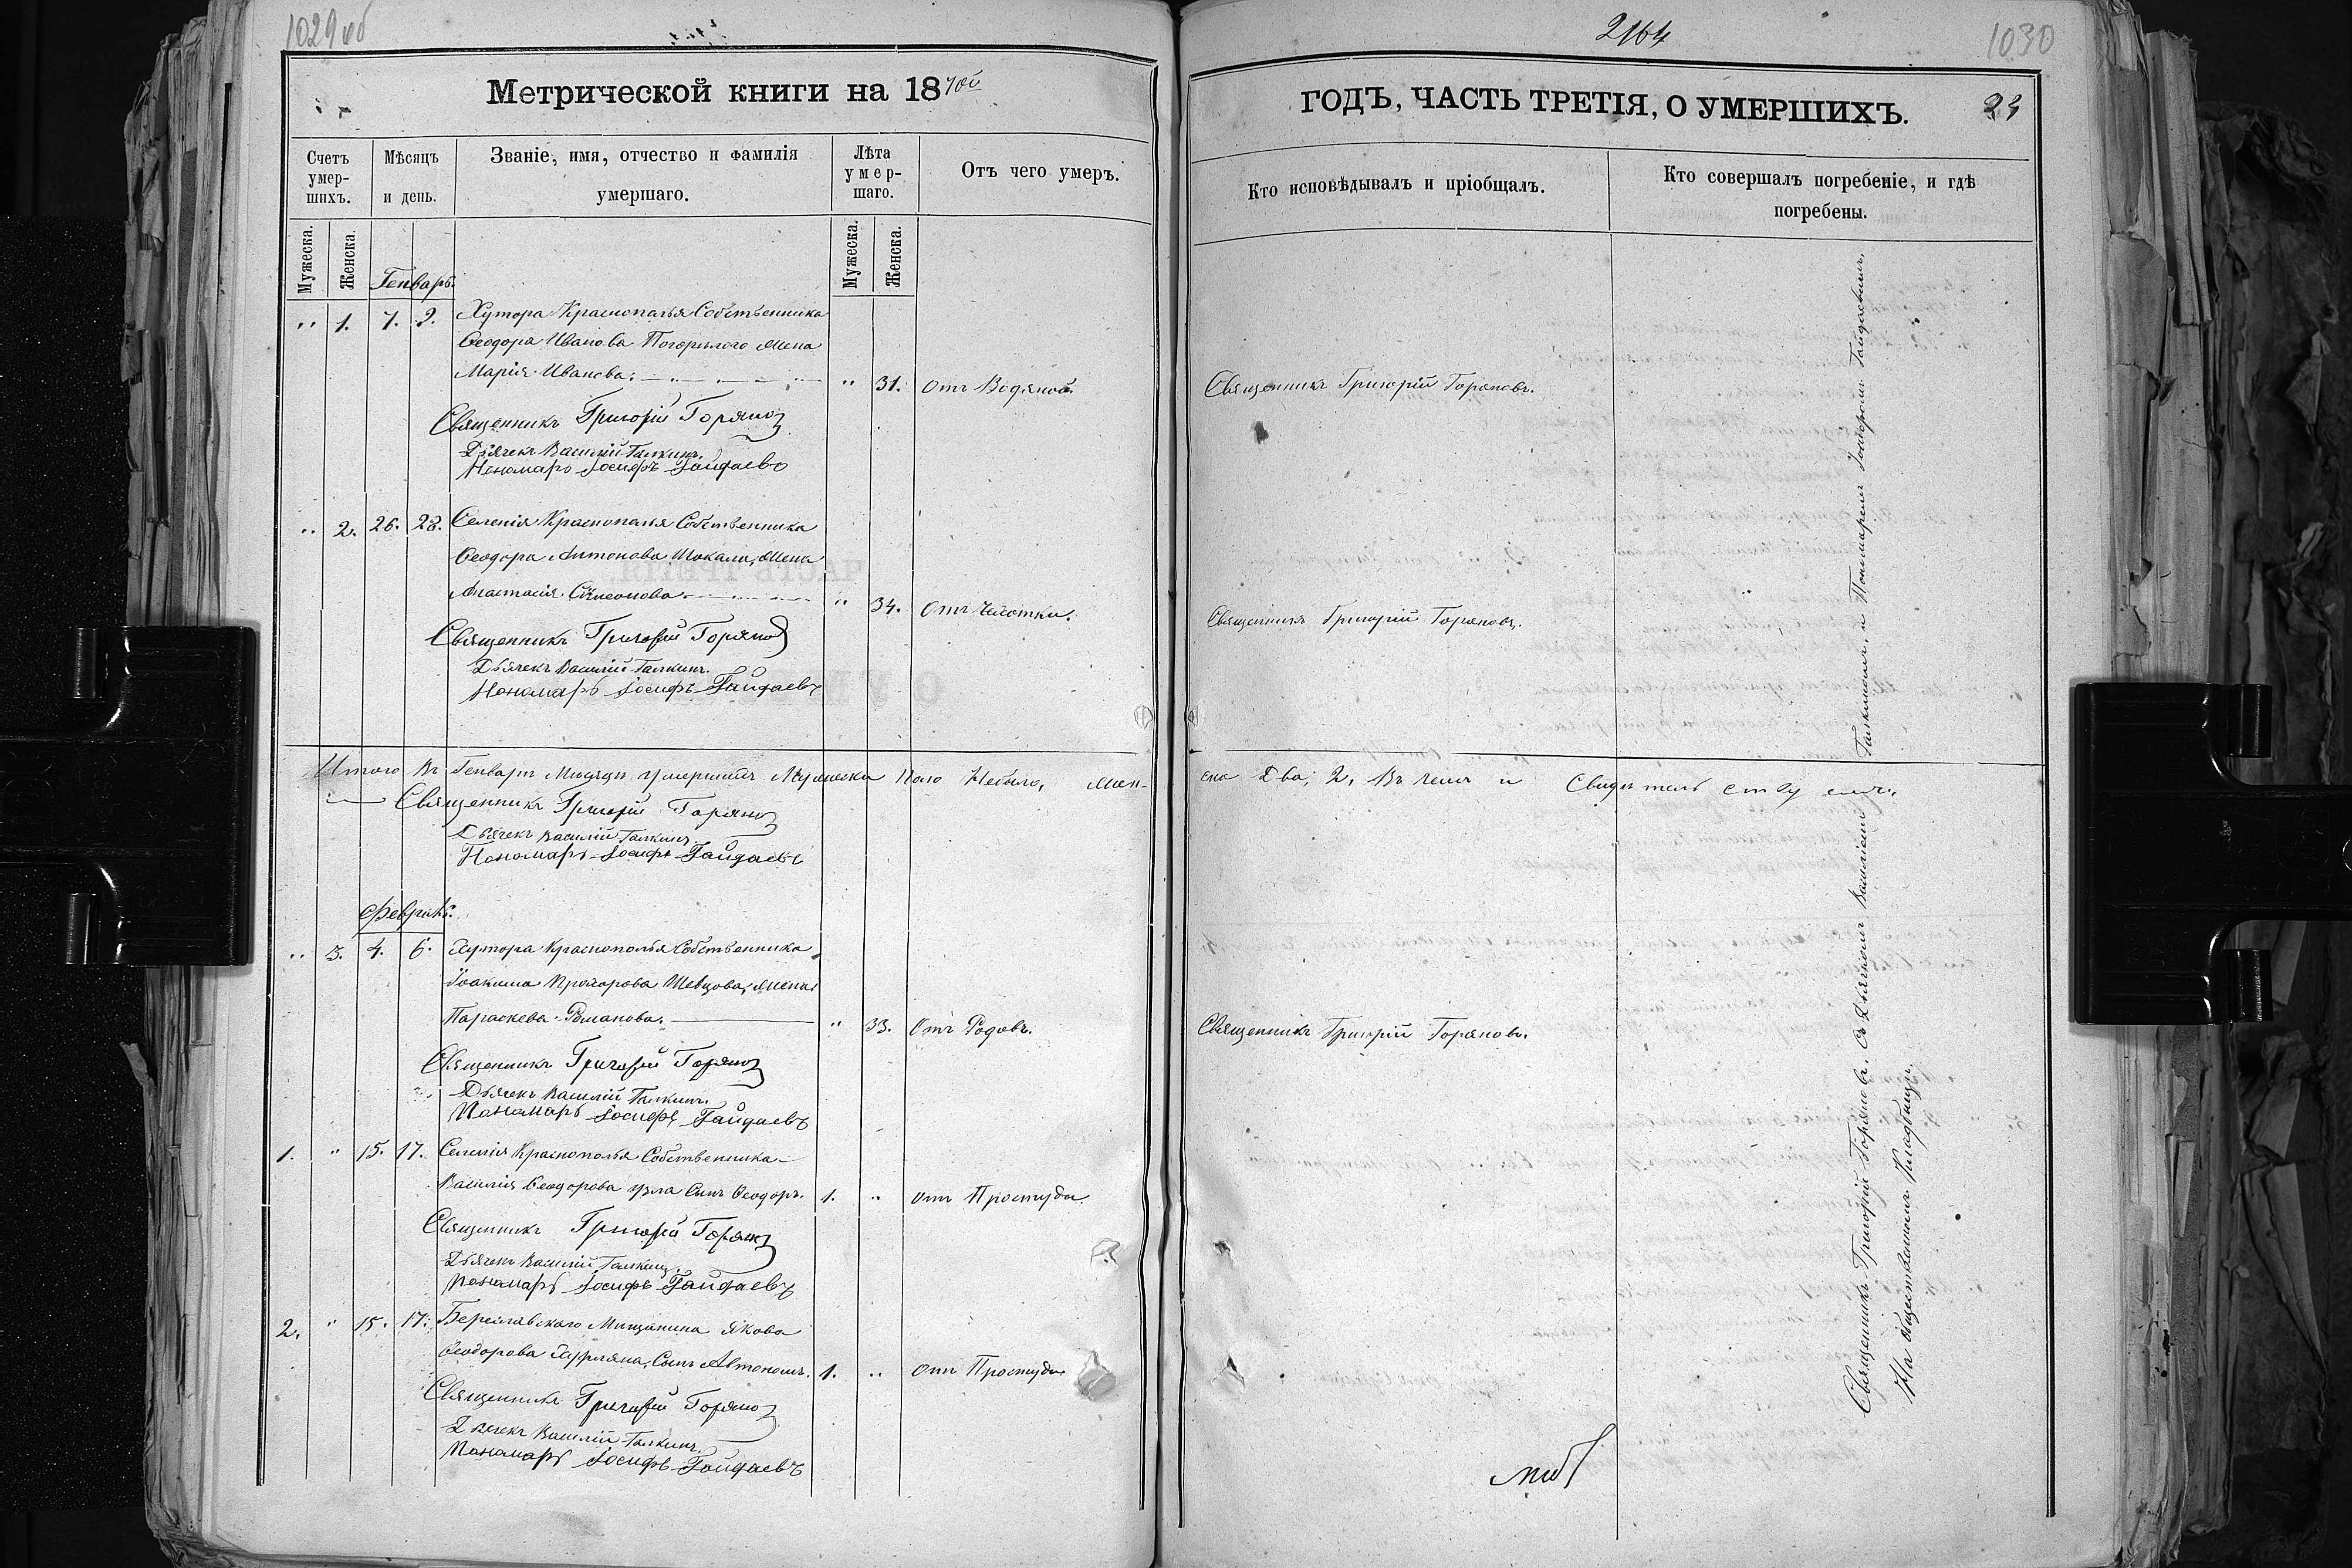 1029 об
Метрической книги на 1870й
Счетъ умер-шихъ.
Мѣсяцъ и день.
Званіе, имя, отчество и фамилія умершаго.
Лѣта умер-шаго.
Отъ чего умеръ.
Мужеска.
Женска
Мужеска.
Женска.
Генварь.
" 1. 7. 9. Хутора Краснополья Собственника
Ѳеодора Иванова Погорилого жена
Марія Иванова. " 31. Отъ Водяной.
Священникъ Григорій Горянов
Дьячекъ Василій Галкинъ.
Пономарь Іосифъ Гайдаевъ
" 2. 26. 28. Селенія Краснополья Собственника
Ѳеодора Антонова Шокали, жена
Анастасія Симеонова. " 34. Отъ Чахотки.
Священникъ Григорій Горянов
Дьячекъ Василій Галкинъ.
Пономарь Іосифъ Гайдаевъ
Итого въ Генварѣ Мѣсяцѣ умершихъ Мужеска пола Небыло, жен-
Священникъ Григорій Горянов
Дьячекъ Василій Галкинъ
Пономарь Іосифъ Гайдаевъ
Февраль.
" 3. 4. 6. Хутора Краснополья Собственника
Іоакима Прохорова Шевцова, жена
Параскева Романова. " 33. Отъ Родовъ.
Священникъ Григорій Горянов
Дьячекъ Василій Галкинъ.
Пономарь Іосифъ Гайдаевъ
1. " 15. 17. Селенія Краснополья Собственника
Василія Ѳеодорова Сынъ Ѳеодоръ. 1. " отъ Простуды
Священникъ Григорій Горянов
Дьячекъ Василій Галкинъ.
Пономарь Іосифъ Гайдаевъ
2. " 15. 17. Бериславского Мищанина Якова
Ѳеодорова Сынъ Автономъ. 1. " отъ Простуды
Священникъ Григорій Горянов
Дьячекъ Василій Галкинъ.
Пономарь Іосифъ Гайдаевъ
2164
1030
ГОДЪ, ЧАСТЬ ТРЕТІЯ, О УМЕРШИХЪ.
Кто исповѣдывалъ и пріобщалъ.
Кто совершалъ погребеніе, и гдѣ погребены.
Священникъ Григорій Горяновъ.
Священникъ Григорій Горяновъ.
ска Два; 2, Въ чемъ и Свидѣтельствуемъ.
Священникъ Григорій Горяновъ.
Священникъ Григорій Горяновъ, Съ Дьячкомъ Василіемъ Галкиномъ, и Пономаремъ Іосифомъ Гайдаевымъ,
На общественномъ Кладбищи.